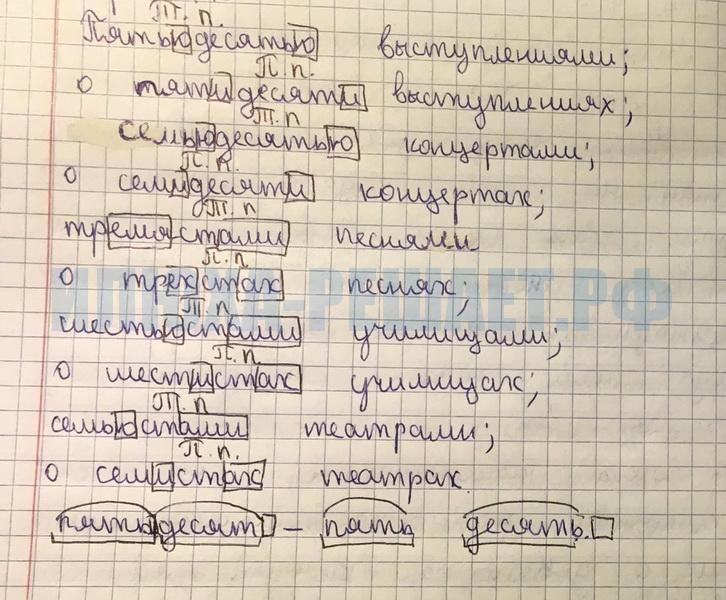 Т. п.
Пятьюдесятью выступлениями;
П. п.
о пятидесяти выступлениях;
Т. п
семьюдесятью концертами;
П. п.
о семидесяти концертах;
Т. п
тремястами песнями
П. п
о трехстах песнях;
Т. п
шестьюстами училищами;
П. п.
о шестистах училищах;
Т. п
семьюстами театрами;
П. п.
о семистах театрах.
пятьдесят – пять десять.
ИЛЮХА-РЕШАЕТ.РФ